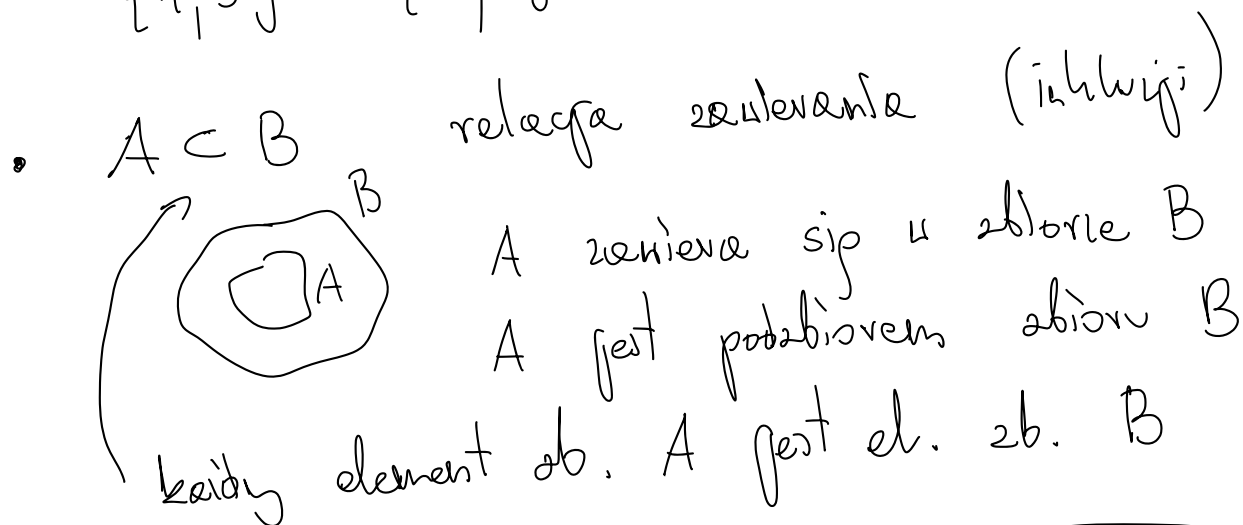 A ⊂ B relacja zawierania (inkluzji)
B
A zawiera się w zbiorze B
A
A jest podzbiorem zbioru B
każdy element zb. A jest el. zb. B